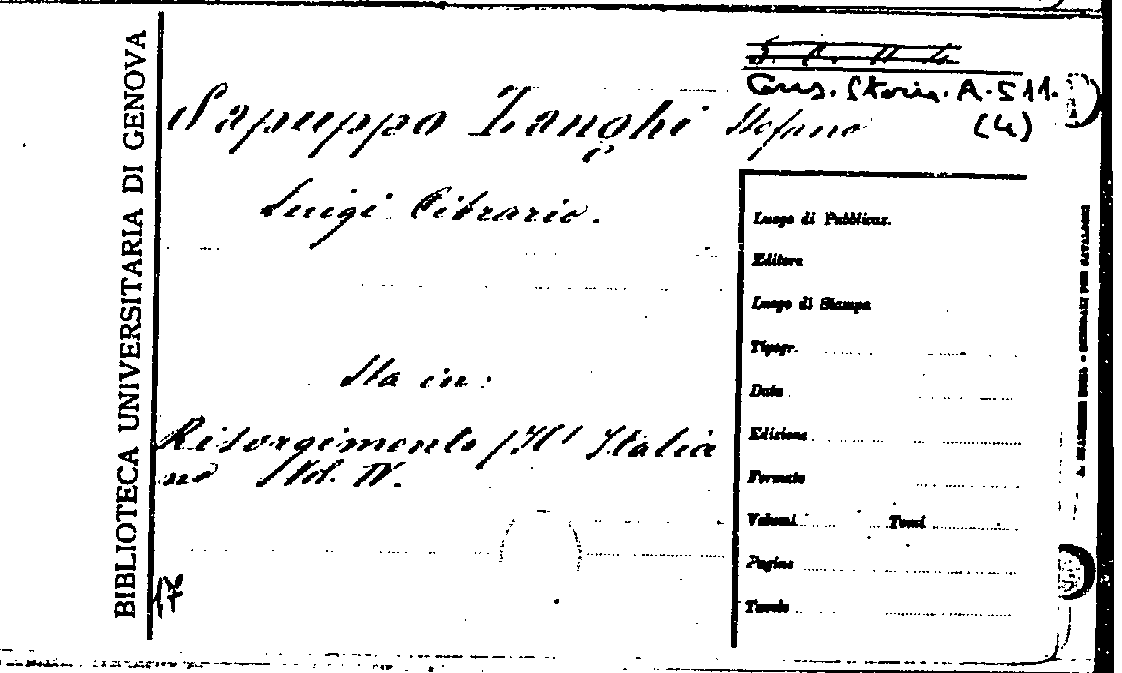 BIBLIOTECA UNIVERSITARIA DI GENOVA
Cons. Storia. A. 511.
(4)
Sapuppo Zanghi Stefano
Luigi Cibrario.
Sta in:
Risorgimento (Il) Italia
no Vol. IV.
17
Luogo di Pubblicaz.
Editore
Luogo di Stampa
Tipogr.
Data
Edizione
Formato
Volumi Tomi
Pagine
Tavole